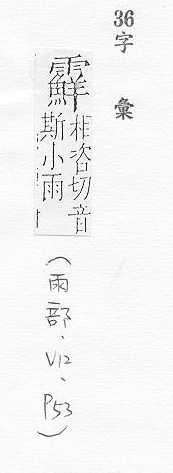 36字 彙
相咨切音
斯小雨
(雨部、V12、P53)